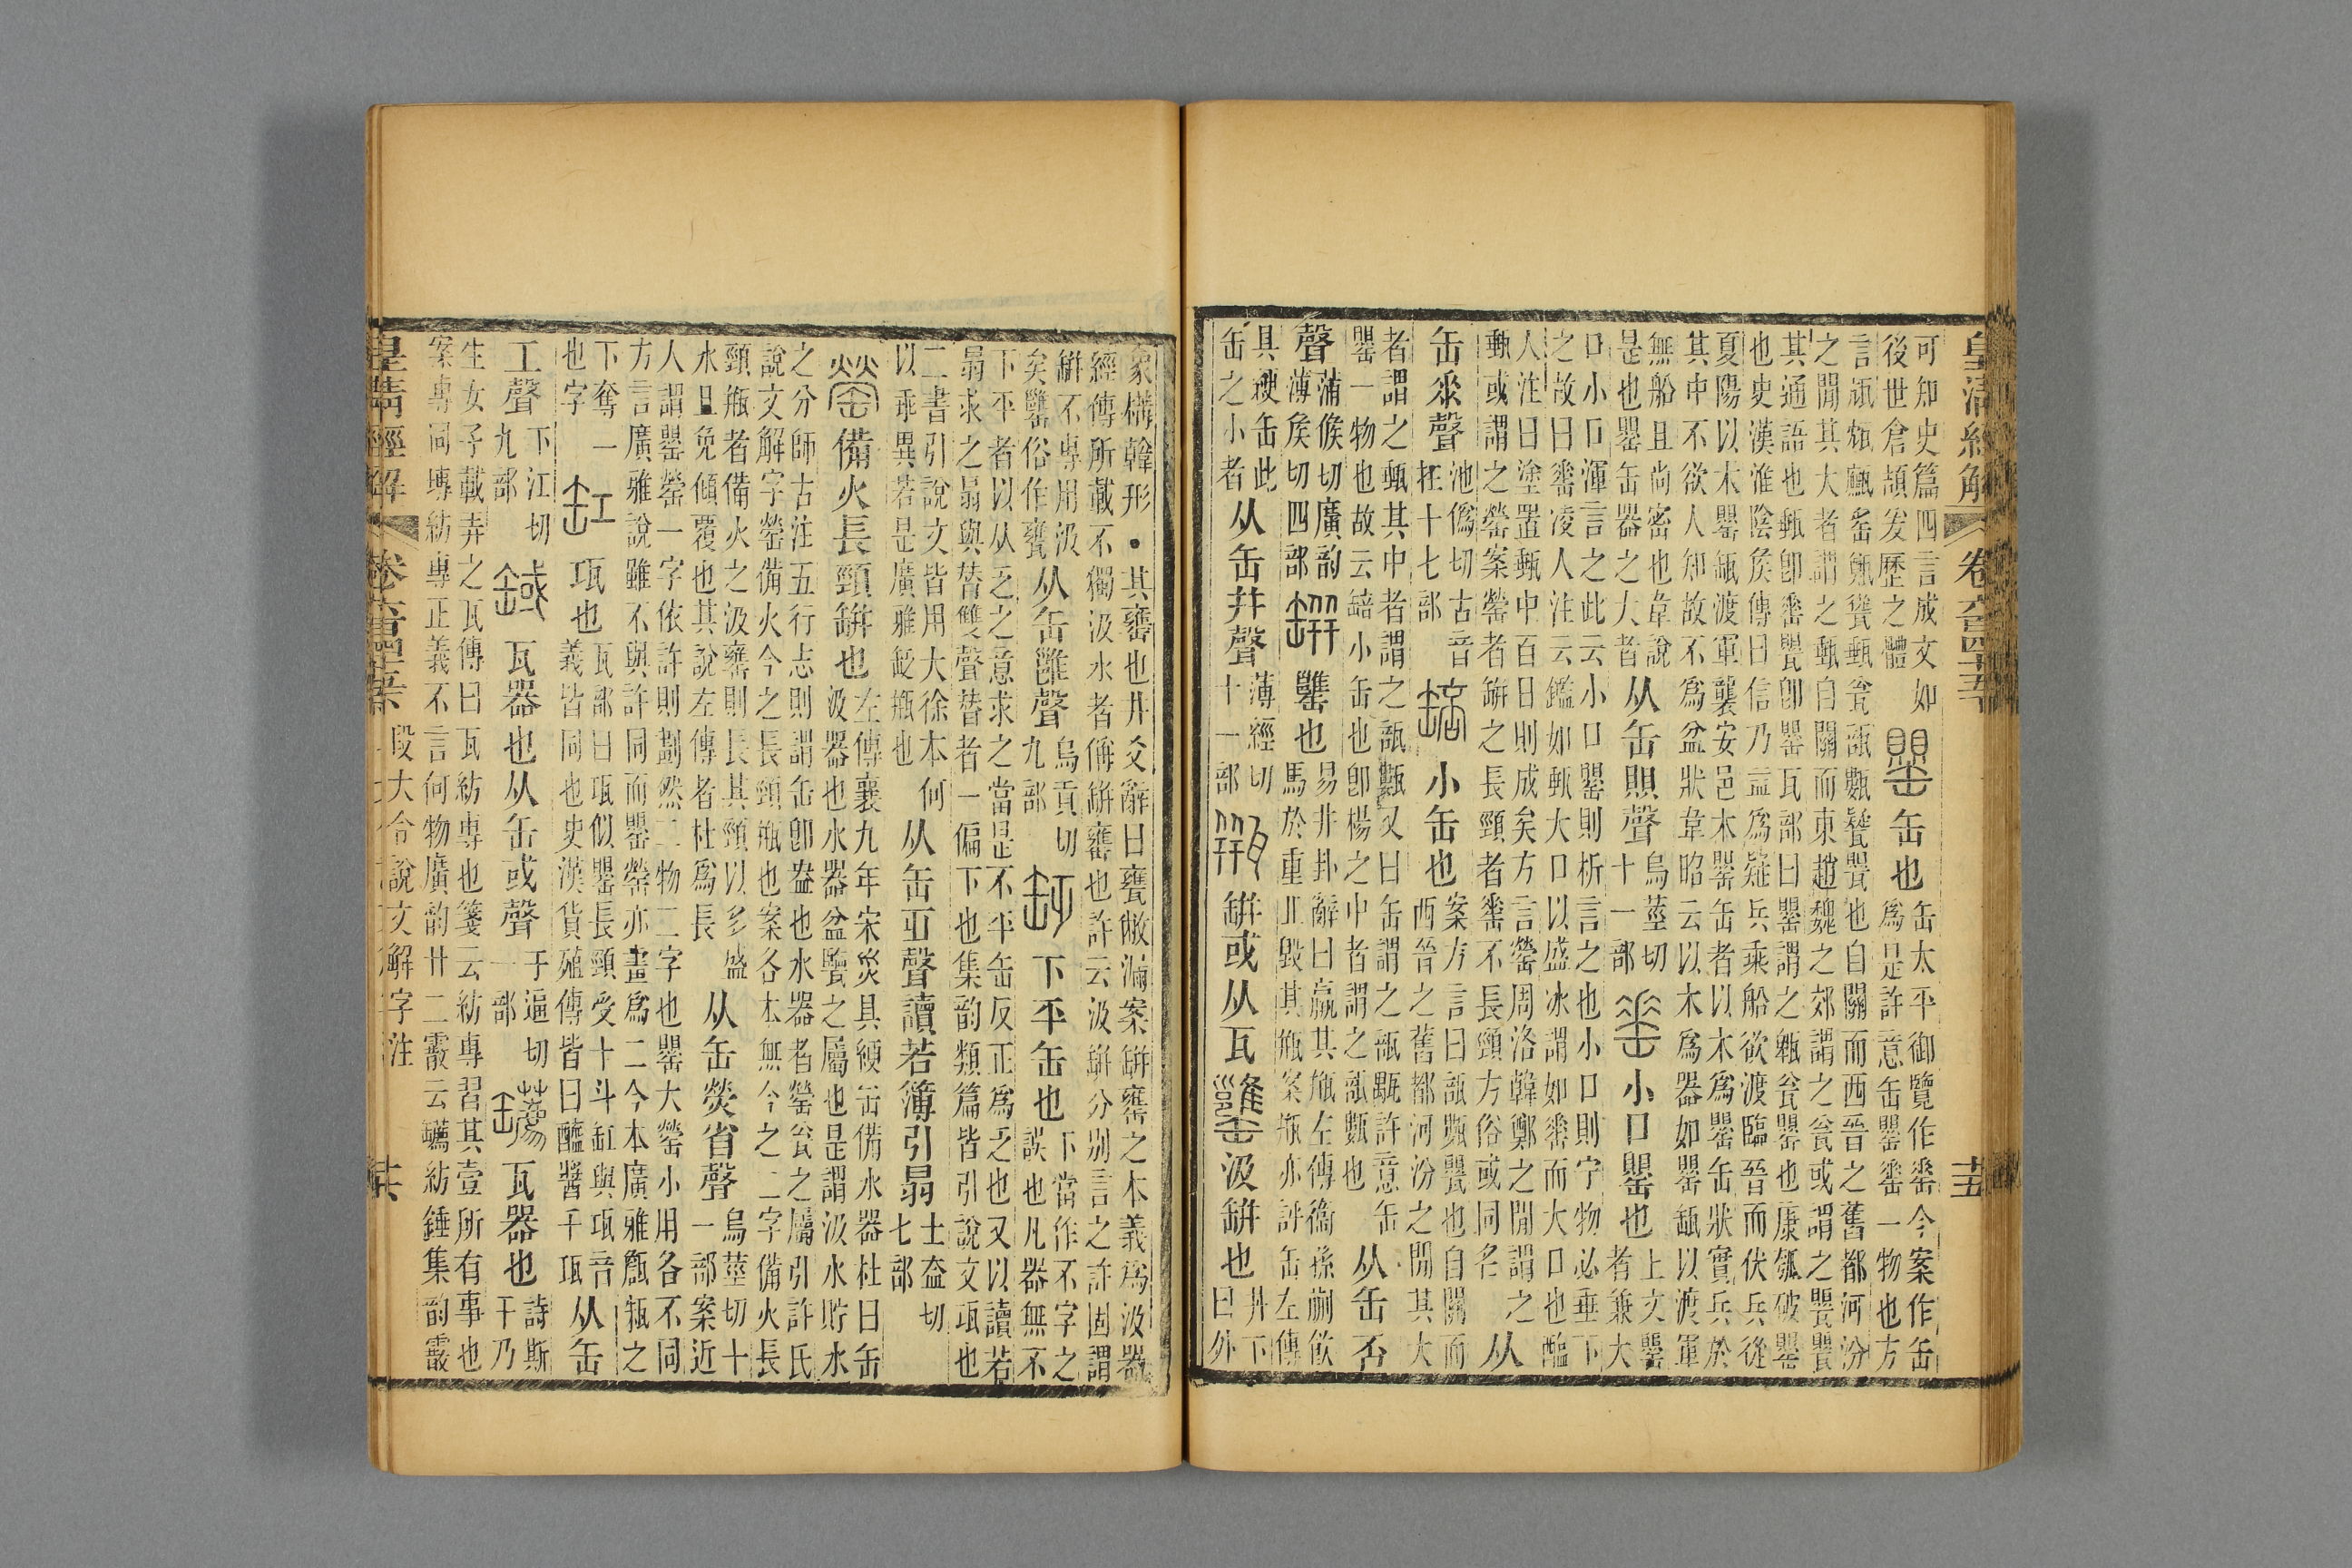 皇清經解 卷六百四十五 十五
可知史篇四言成文如
後世倉頡爰歷之體
罌 缶也
缶太平御覽作䍋今案作缶
爲是許意缶罌䍋一物也方
言瓬㼚甂䍃㼶甖甀瓮瓿甊甖也自關而西晉之舊都河汾
之閒其大者謂之甀自關而東趙魏之郊謂之瓮或謂之甖甖
其通語也甀卽䍋甖卽罌瓦部曰罌謂之㼸瓮罌也康瓠破罌
也史漢淮陰矦傳曰信乃益爲疑兵乘船欲渡臨晉而伏兵從
夏陽以木罌缻渡軍襲安邑木罌缶者以木爲罌缶狀實兵於
其中不欲人知故不爲盆狀韋昭云以木爲器如罌缻以渡軍
無船且尚密也韋說
是也罌缶器之大者
从缶賏聲
烏莖切
十一部
䍋 小口罌也
上文罌
者兼大
口小口渾言之此云小口罌則析言之也小口則宁物必垂下
之故曰䍋凌人注云鑑如甀大口以盛冰謂如䍋而大口也醢
人注曰塗置甀中百日則成矣方言罃周洛韓鄭之閒謂之
甀或謂之罃案罃者缾之長頸者䍋不長頸方俗或同名
从
缶𠂹聲
池僞切古音
在十七部
䍌 小缶也
案方言曰瓿甊甖也自關而
西晉之舊都河汾之閒其大
者謂之甀其中者謂之瓿甊又曰缶謂之瓿㼶許意缶
罌一物也故云䍌小缶也卽楊之中者謂之瓿甊也
从缶咅
聲
蒲候切廣韵
薄矦切四部
缾 罋也
易井卦辭曰羸其瓶左傳衞孫蒯飮
馬於重丘毀其瓶案瓶亦評缶左傳
具綆缶此
缶之小者
从缶幷聲
薄經切
十一部
瓶 缾或从瓦 罋 汲缾也
井下
曰外
象構韓形・其罋也井爻辭曰甕敝漏案缾罋之本義爲汲器
經傳所載不獨汲水者偁缾罋也許云汲缾分别言之許固謂
缾不專用汲
矣罋俗作甕
从缶雝聲
烏貢切
九部
𦈫 下平缶也
下當作不字之
誤也凡器無不
下平者以从乏之意求之當是不平缶反正爲乏也又以讀若
㬱求之㬱與朁雙聲朁者一偏下也集韵類篇皆引說文瓨也
二書引說文皆用大徐本何
以乖異若是廣雅𦈫瓶也
从缶乏聲讀若簿引㬱
土盍切
七部
罃 備火長頸缾也
左傳襄九年宋災具綆缶備水器杜曰缶
汲器也水器盆鑒之屬也是謂汲水貯水
之分師古注五行志則謂缶卽盎也水器者罃瓮之屬引許氏
說文解字罃備火今之長頸瓶也案各本無今之二字備火長
頸瓶者備火之汲罋則長其頸以多盛
水且免傾覆也其說左傳者杜爲長
从缶熒省聲
烏莖切十
一部案近
人謂罌罃一字依許則劃然二物二字也罌大罃小用各不同
方言廣雅說雖不與許同而罌罃亦畫爲二今本廣雅甖㼛之
下奪一
也字
缸 瓨也
瓦部曰瓨似罌長頸受十斗缸與瓨音
義皆同也史漢貨殖傳皆曰醯醬千瓨
从缶
工聲
下江切
九部
䤋 瓦器也从缶或聲
于逼切
一部
䥫 瓦器也
詩斯
干乃
生女子載弄之瓦傳曰瓦紡專也箋云紡專習其壹所有事也
案專同塼紡專正義不言何物廣韵廿二霰云䥫紡錘集韵霰
皇清經解 卷六百四十五 段大令說文解字注 十六